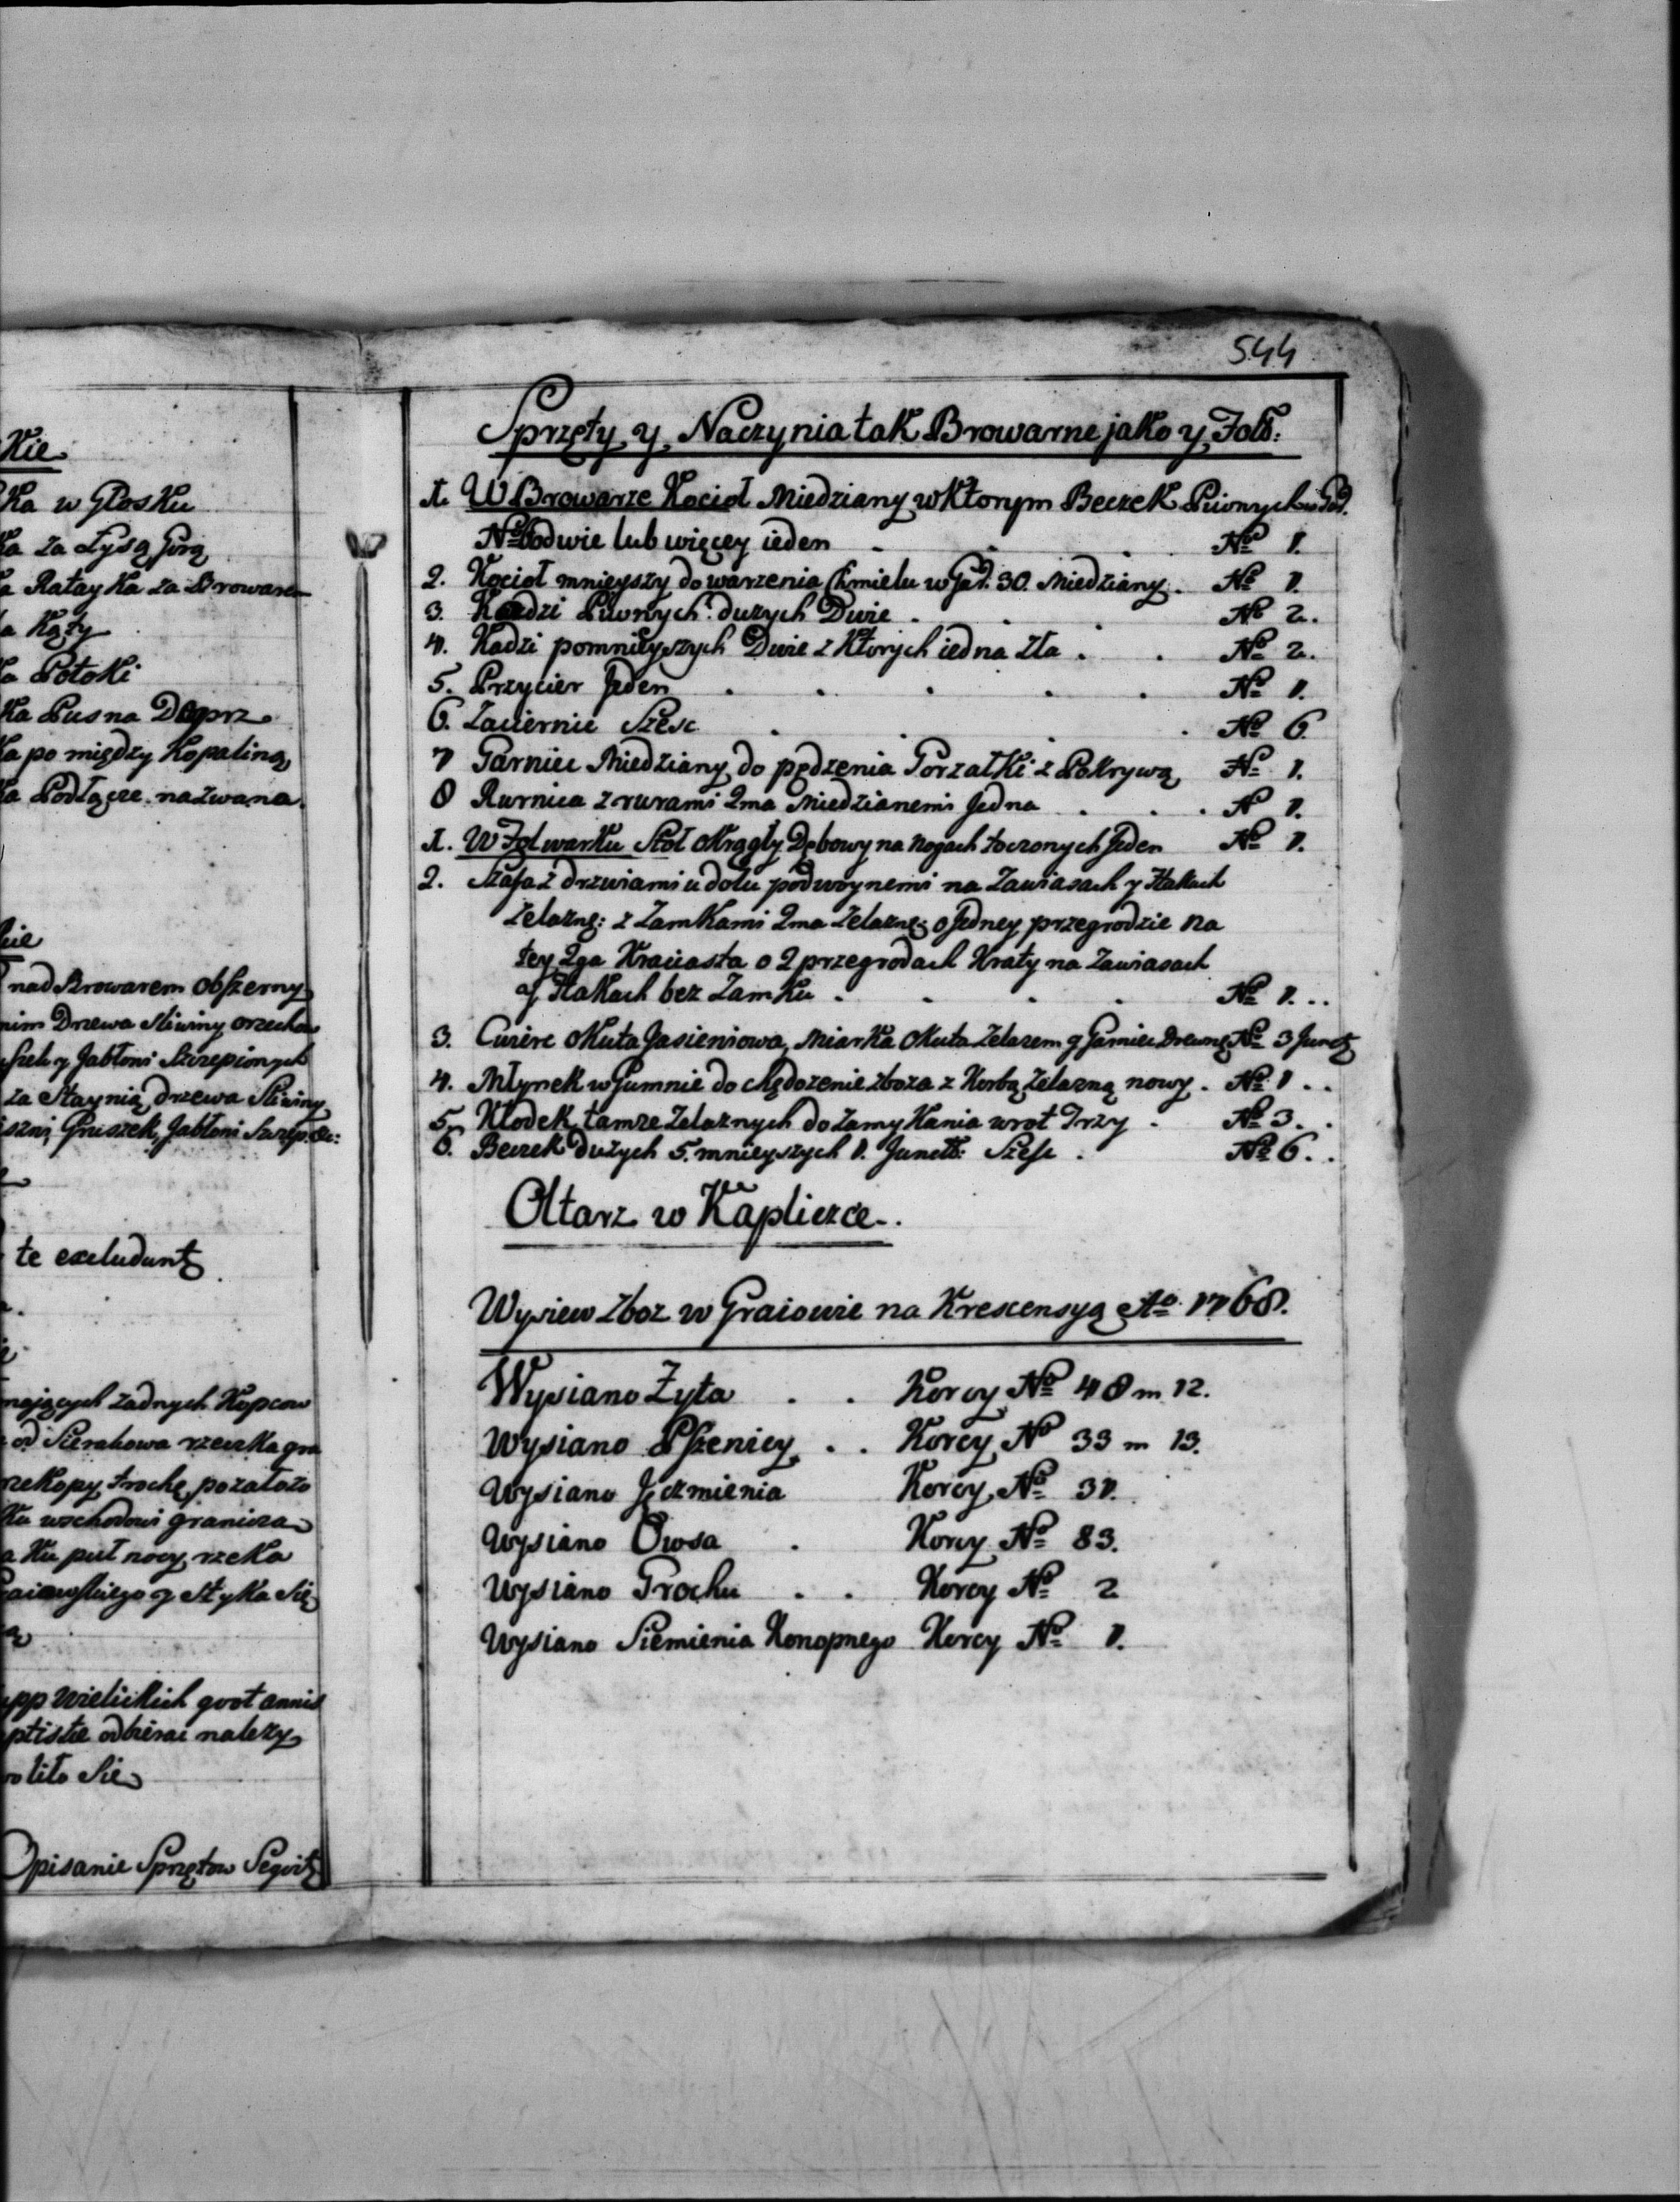 Kie
Ka w Głosku
Ka za Łysą Gorą
a Ratayka za Browarem
a Kąty
Ka Potoki
Ka Pusna
Ka po między Kopaliną
Ka Podłącze nazwana
kie
nad Browarem obszerny
nim Drzewa Sliwiny orzecha
y Jabłoni Szczepionych
za Staynią drzewa Sliwiny
Gruszek, Jabłoni Szczep. etc:
te excludunt
mających żadnych Kopcow
od Sierakowa rzeczka gra
rzekopy trochę pozatozo
Ku wschodowi granicza
a Ku puł nocy rzeka
raiowskiego y Styka Się
upp Wielickich quot annis
ptistæ odbierac należy
Się
Opisanie Sprzętow Seqvit
544
Sprzęty y Naczynia tak Browarne jako y Folw:
1. W Browarze Kocioł Miedziany w Ktorym Beczek Piwnych
dwie lub więcey ieden . . . No 1.
2. Kocioł mnieyszy do warzenia Chmielu w Gar. 30. Miedziany. No 1.
3. Kadzi Piwnych dużych Dwie . . . No 2.
4. Kadzi pomnieyszych Dwie z Ktorych iedna zła . . No 2.
5. Przycier Jeden . . . . . No 1.
6. Zaciernic Szesc . . . . No 6.
7 Garniec Miedziany do pędzenia Gorzałki z Pokrywą No 1.
8 Rurnica z rurami 2ma Miedzianemi Jedna . . . No 1.
1. W Folwarku Stoł okrągły Dębowy na nogach toczonych Jeden No 1.
2. Szafa z drzwiami u dołu podwoynemi na Zawiasach y Hakach
Zelazne: z Zamkami 2ma Zelazne: o Jedney przegrodzie na
tey 2ga Kraciasta o 2 przegrodach Kraty na Zawiasach
y Hakach bez Zamku . . . . No 1. . .
3. Cwierc okuta Jasieniowa, Miarka okuta Zelazem y Garniec Drewn: No 3 Junct
4. Młynek w Gumnie do chędożenie zboza z Korbą Zelazną nowy. No 1 . .
5. Kłodek tamze Zelaznych do Zamykania wrot Trzy . No 3. .
6. Beczek Dużych 5. mnieyszych 1. Junctt: Szesc . No 6. .
Ołtarz w Kapliczce.
Wysiew zboz w Graiowie na Krescensyą Ao 1768.
Wysiano Zyta . . Korcy No 48 m 12.
Wysiano Pszenicy . . Korcy No 33 m 13.
Wysiano Jęczmienia Korcy No 31.
Wysiano Owsa . Korcy No 83.
Wysiano Grochu . . Korcy No 2
Wysiano Siemienia Konopnego Korcy No 1.